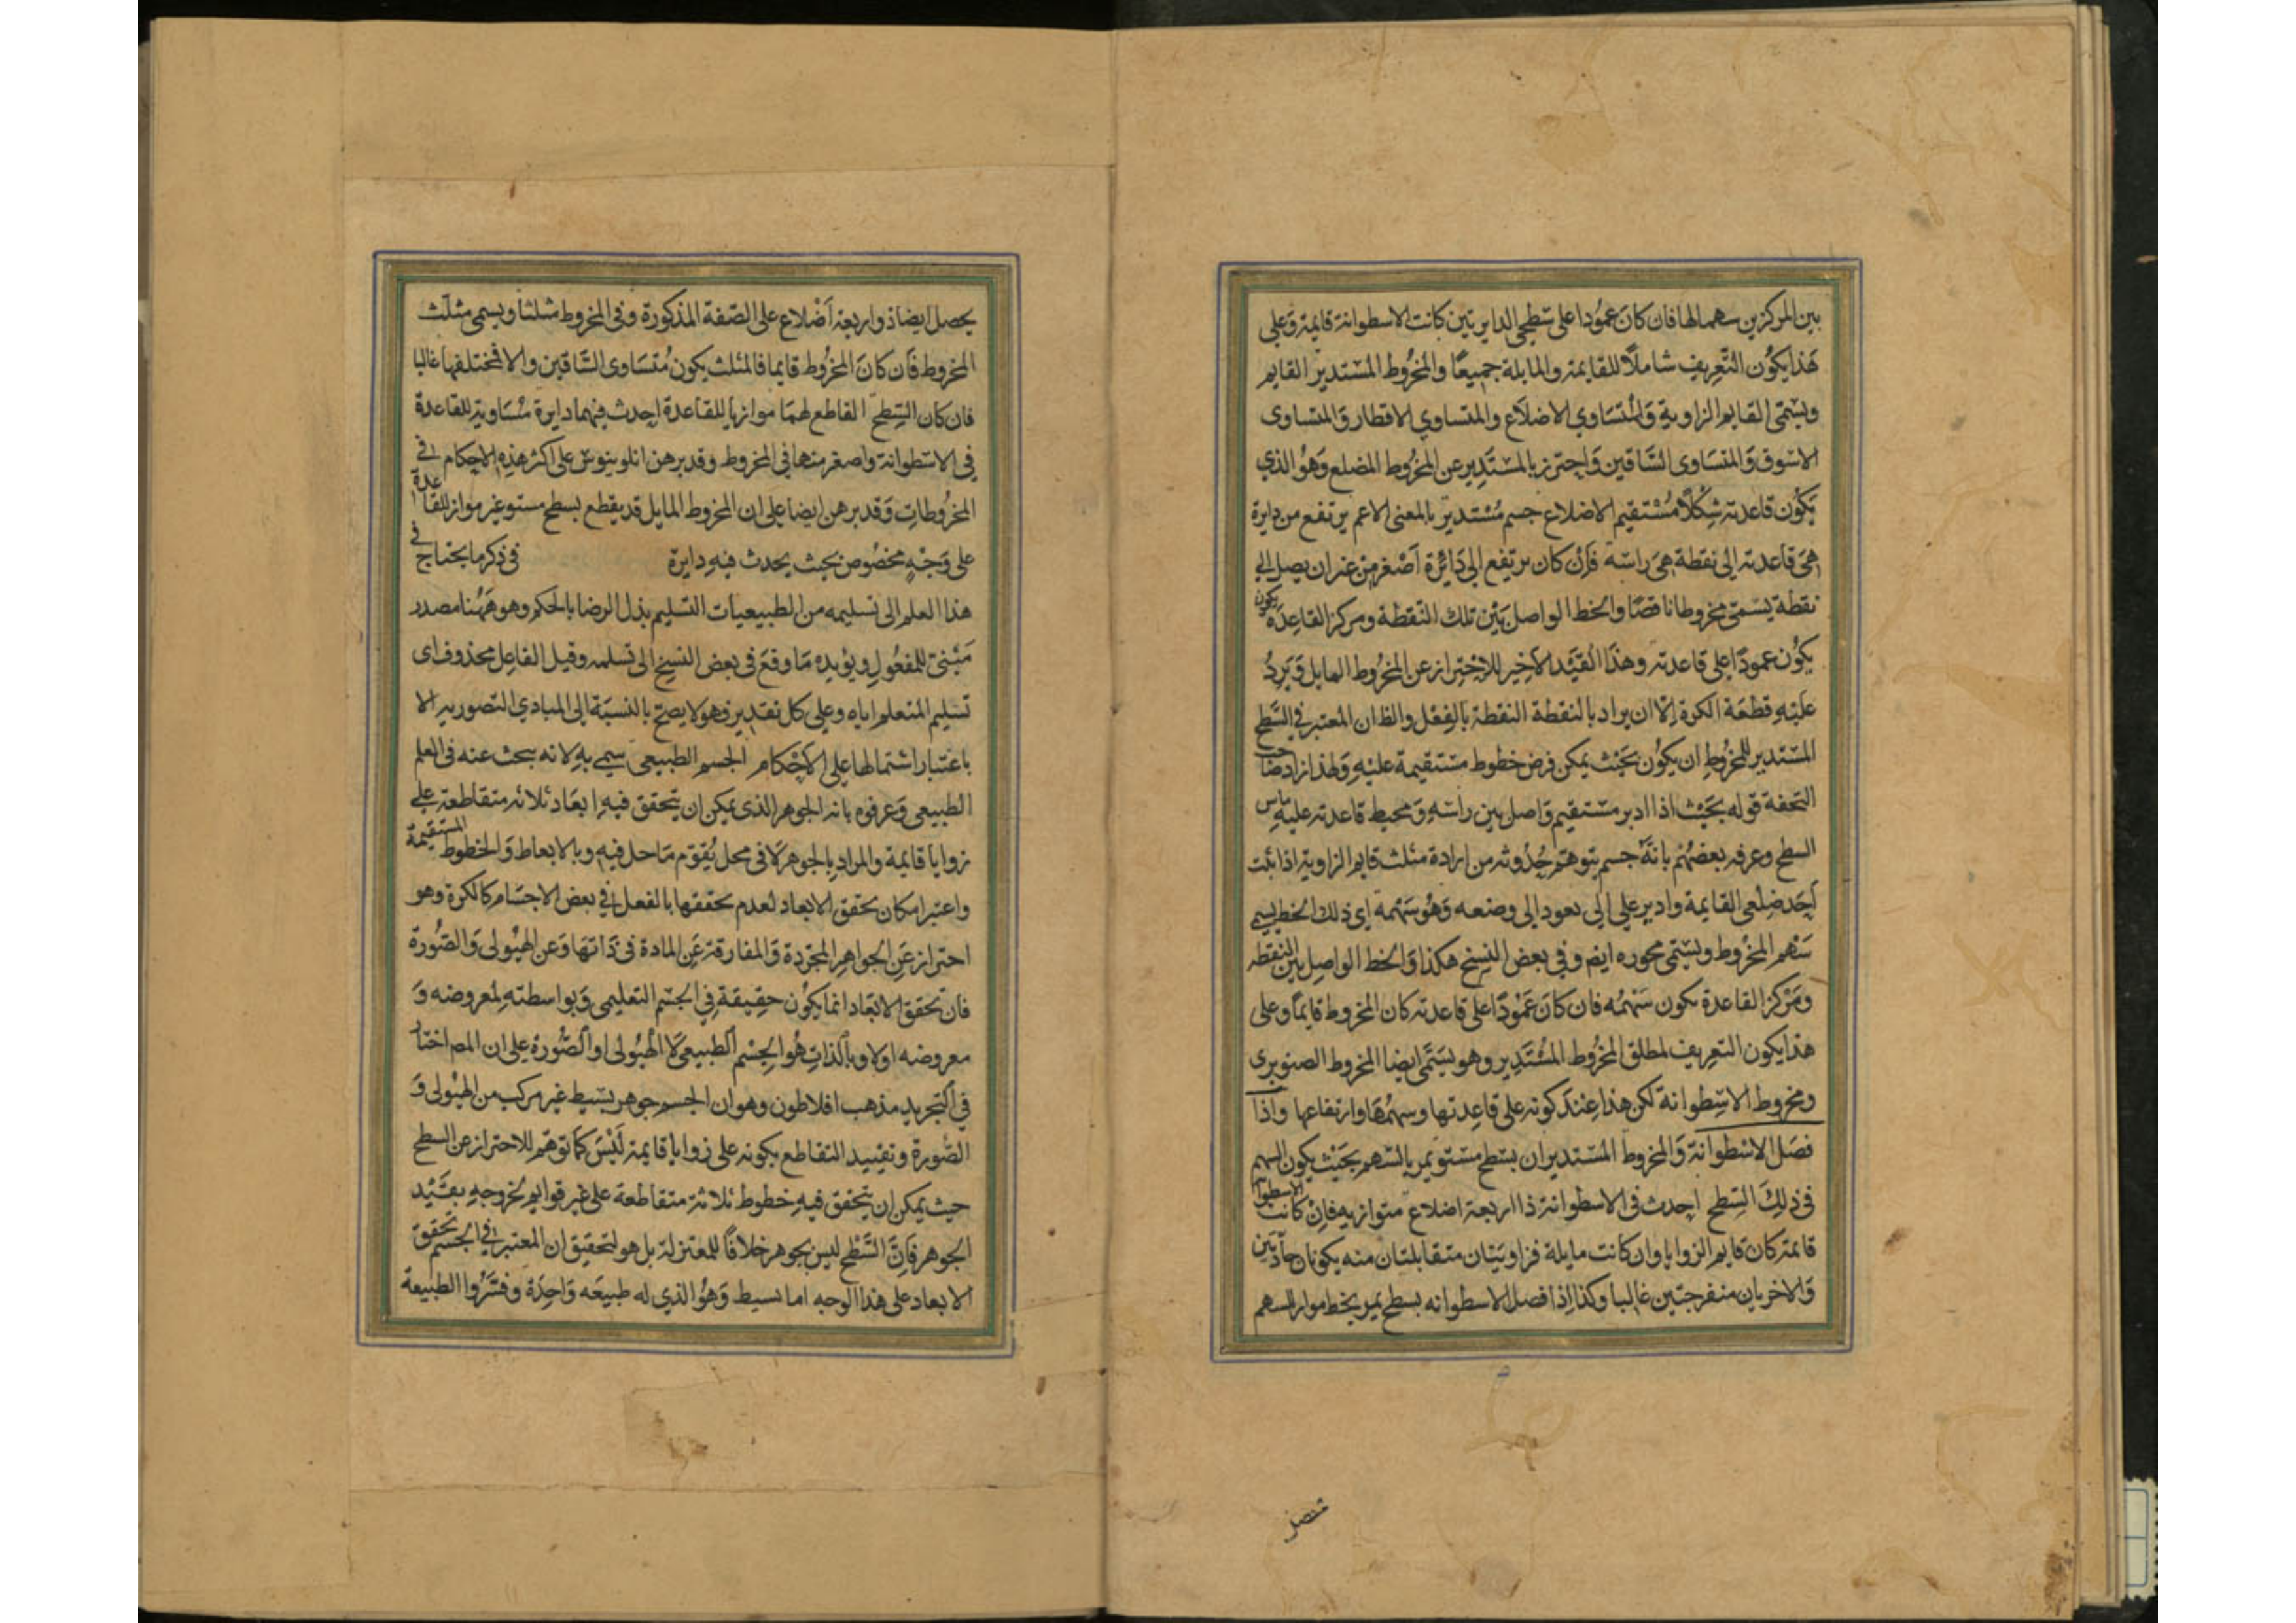 بين المركزين سهما لها فان كان عمودا على سطحى الدايرتين كانت الاسطوانة قايمة وعلى
هذا يكون التعريف شاملا للقايمة والمايلة جميعا والمخروط المستدير القايم
ويسمى القايم الزاوية والمتساوي الاضلاع والمتساوي الاقطار والمتساوى
الاسوق والمتساوى الساقين واحترز بالمستدير عن المخروط المضلع وهو الذي
يكون قاعدته شكلا مستقيم الاضلاع جسم مستدير بالمعنى الاعم يرتفع من دايرة
هى قاعدته الى نقطة هى راسه فان كان يرتفع الى دائرة اصغر من غير ان يصل الى
نقطة يسمى مخروطا ناقصا والخط الواصل بين تلك النقطة ومركز القاعدة يكون
يكون عمودا على قاعدته وهذا القيد الاخير للاحتراز عن المخروط المايل ويرد
عليه قطعة الكرة الا ان يراد بالنقطة النقطة بالفعل والظ ان المعتبر في السطح
المستدير للمخروط ان يكون بحيث يمكن فرض خطوط مستقيمة عليه ولهذا زاد صاحب
التحفة قوله بحيث اذا ادير مستقيم واصل بين راسه ومحيط قاعدته عليه ماس
السطح وعرفه بعضهم بانه جسم يتوهم حدوثه من ادارة مثلث قايم الزاوية اذا ثبت
احد ضلعى القايمة وادير على الى يعود الى وضعه وهو سهمه اي ذلك الخط يسمى
سهم المخروط ويسمى محوره ايضم وفي بعض النسخ هكذا والخط الواصل بين النقطه
ومركز القاعدة يكون سهمه فان كان عمودا على قاعدته كان المخروط قايما وعلى
هذا يكون التعريف لمطلق المخروط المستدير وهو يسمى ايضا المخروط الصنوبرى
ومخروط الاسطوانة لكن هذا عند كونه على قاعدتها وسهمها وارتفاعها واذا
فصل الاسطوانة والمخروط المستديران بسطح مستو يمر بالسهم بحيث يكون السهم
في ذلك السطح احدث فى الاسطوانة ذا اربعة اضلاع متوازيه فان كانت الاسطوا
قائمة كان قايم الزوايا وان كانت مايلة فزاويتان متقابلتان منه يكونان حادتين
والاخريان منفرجتين غالبا وكذا اذا فصل الاسطوانه بسطح يمر بخط مواز للسهم
يحصل ايضا ذو اربعة اضلاع على الصفة المذكورة وفى المخروط مثلثا ويسمى مثلث
المخروط فان كان المخروط قايما فالمثلث يكون متساوى الساقين والا فمختلفها غالبا
فان كان السطح القاطع لهما موازيا للقاعدة احدث فيهما دايرة مساوية للقاعدة
في الاسطوانة واصغر منها في المخروط وقد برهن ابلونيوس على اكثر هذه الاحكام في
المخروطات وقد برهن ايضا على ان المخروط المايل قد يقطع بسطح مستو غير مواز للقاعدة
على وجه مخصوص بحيث يحدث فيه دايرة في ذكر ما يحتاج في
هذا العلم الى تسليمه من الطبيعيات التسليم بذل الرضا بالحكم وهو ههنا مصدر
مبنى للمفعول ويؤيده ما وقع فى بعض النسخ الى تسلمه وقيل الفاعل محذوف اى
تسليم المتعلم اياه وعلى كل تقدير فهو لا يصح بالنسبة الى المبادي التصوريه الا
باعتبار اشتمالها على الاحكام الجسم الطبيعى سمى به لانه يبحث عنه فى العلم
الطبيعى وعرفوه بانه الجوهر الذى يمكن ان يتحقق فيه ابعاد ثلاثه متقاطعة على
زوايا قايمة والمراد بالجوهر لا فى محل يقوم ما حل فيه وبالابعاط والخطوط المستقيمة
واعتبر امكان تحقق الابعاد لعدم تحققها بالفعل في بعض الاجسام كالكرة وهو
احتراز عن الجواهر المجردة والمفارقة عن المادة فى ذاتها وعن الهيولى والصورة
فان تحقق الابعاد انما يكون حقيقة في الجسم التعليمى وبواسطته لمعروضه و
معروضه اولا وبالذات هو الجسم الطبيعى لا الهيولى او الصورة على ان المص اختار
في التجريد مذهب افلاطون وهو ان الجسم جوهر بسيط غير مركب من الهيولى و
الصورة وتقييد التقاطع بكونه على زوايا قايمة ليس كما توهم للاحتراز عن السطح
حيث يمكن ان يتحقق فيه خطوط ثلاثة متقاطعة على غير قوايم لخروجه بقيد
الجوهر فان السطح ليس بجوهر خلافا للمعتزلة بل هو لتحقيق ان المعتبر في الجسم تحقق
الابعاد على هذا الوجه اما بسيط وهو الذي له طبيعه واحدة وفسروا الطبيعة